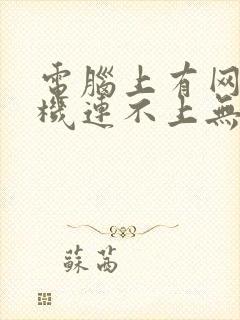 電腦上有网
機連不上無
蘇茜